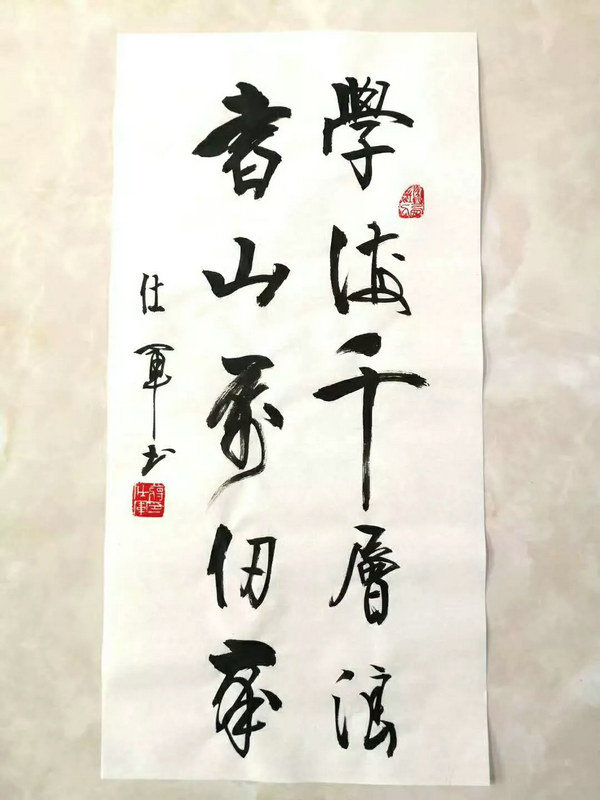 學海千層浪
書山萬仞峯
仕軍书